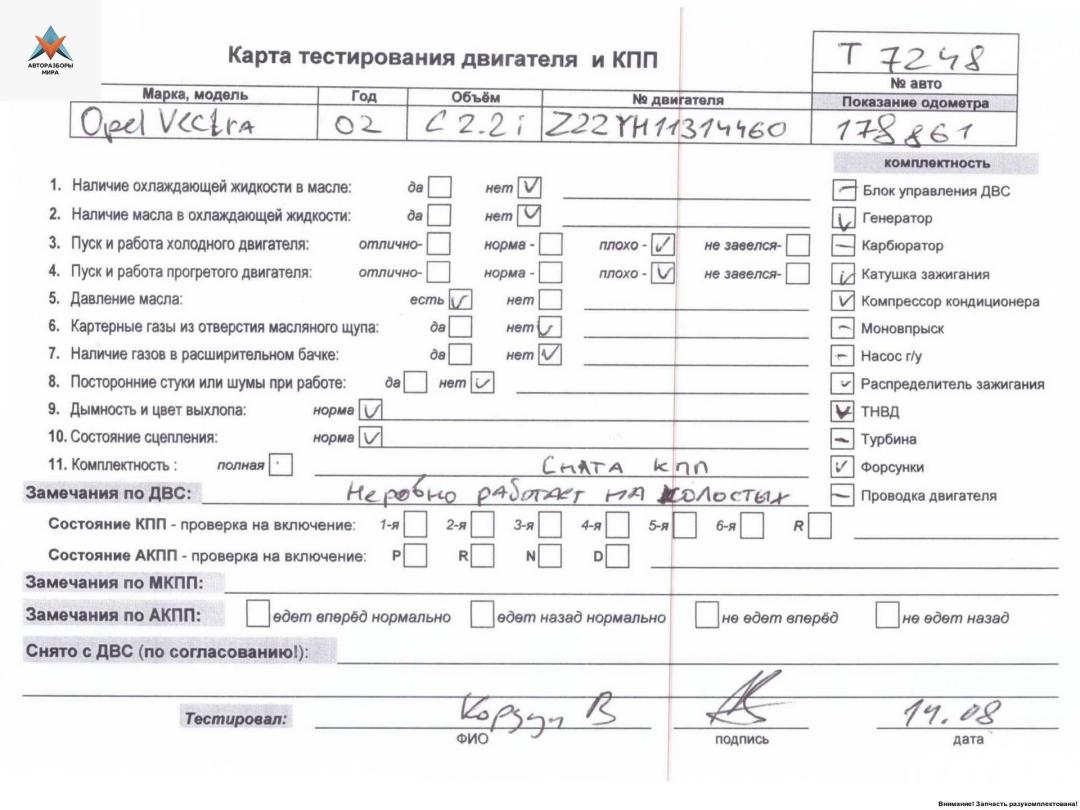 АВТОРАЗБОРЫ
МИРА
Карта тестирования двигателя и КПП
Т 7248
№ авто
Марка, модель Год Объём № двигателя Показание одометра
Opel Vectra 02 C 2.2 i Z22YH11314460 178861
комплектность
1. Наличие охлаждающей жидкости в масле: да нет
Блок управления ДВС
2. Наличие масла в охлаждающей жидкости: да нет
Генератор
3. Пуск и работа холодного двигателя: отлично- норма - плохо - не завелся-
Карбюратор
4. Пуск и работа прогретого двигателя: отлично- норма - плохо - не завелся-
Катушка зажигания
5. Давление масла: есть нет
Компрессор кондиционера
6. Картерные газы из отверстия масляного щупа: да нет
Моновпрыск
7. Наличие газов в расширительном бачке: да нет
Насос г/у
8. Посторонние стуки или шумы при работе: да нет
Распределитель зажигания
9. Дымность и цвет выхлопа: норма
ТНВД
10. Состояние сцепления: норма
Турбина
11. Комплектность : полная Снята КПП
Форсунки
Замечания по ДВС: Неровно работает на холостых
Проводка двигателя
Состояние КПП - проверка на включение: 1-я 2-я 3-я 4-я 5-я 6-я R
Состояние АКПП - проверка на включение: P R N D
Замечания по МКПП:
Замечания по АКПП: едет вперёд нормально едет назад нормально не едет вперёд не едет назад
Снято с ДВС (по согласованию!):
Тестировал: В 14.08
ФИО подпись дата
Внимание! Запчасть разукомплектована!